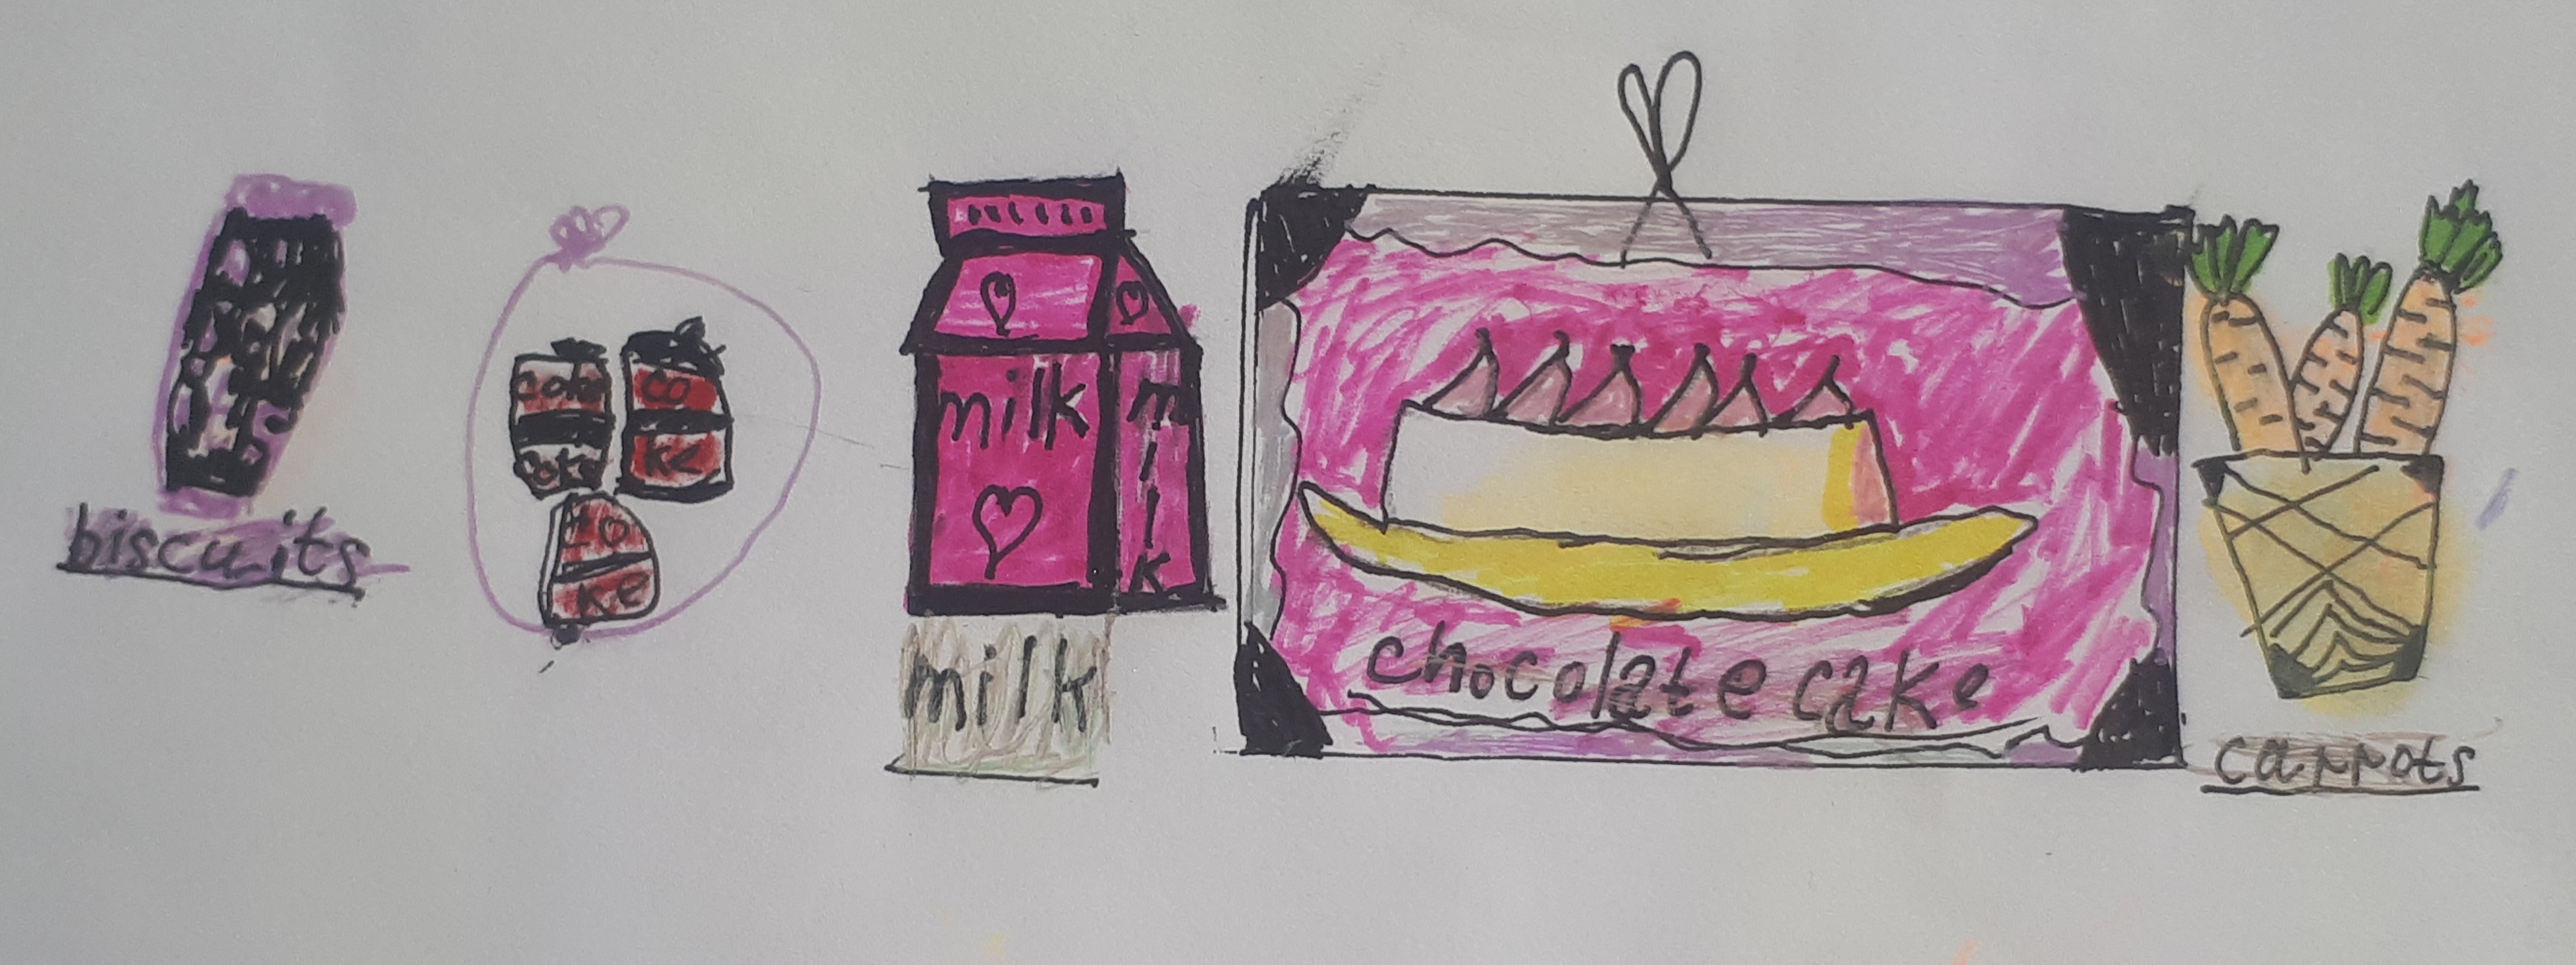 biscuits
coke
coke
co
ke
ke
milk
milk
milk
chocolate cake
carrots